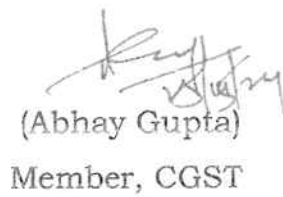 (Abhay Gupta)
Member, CGST